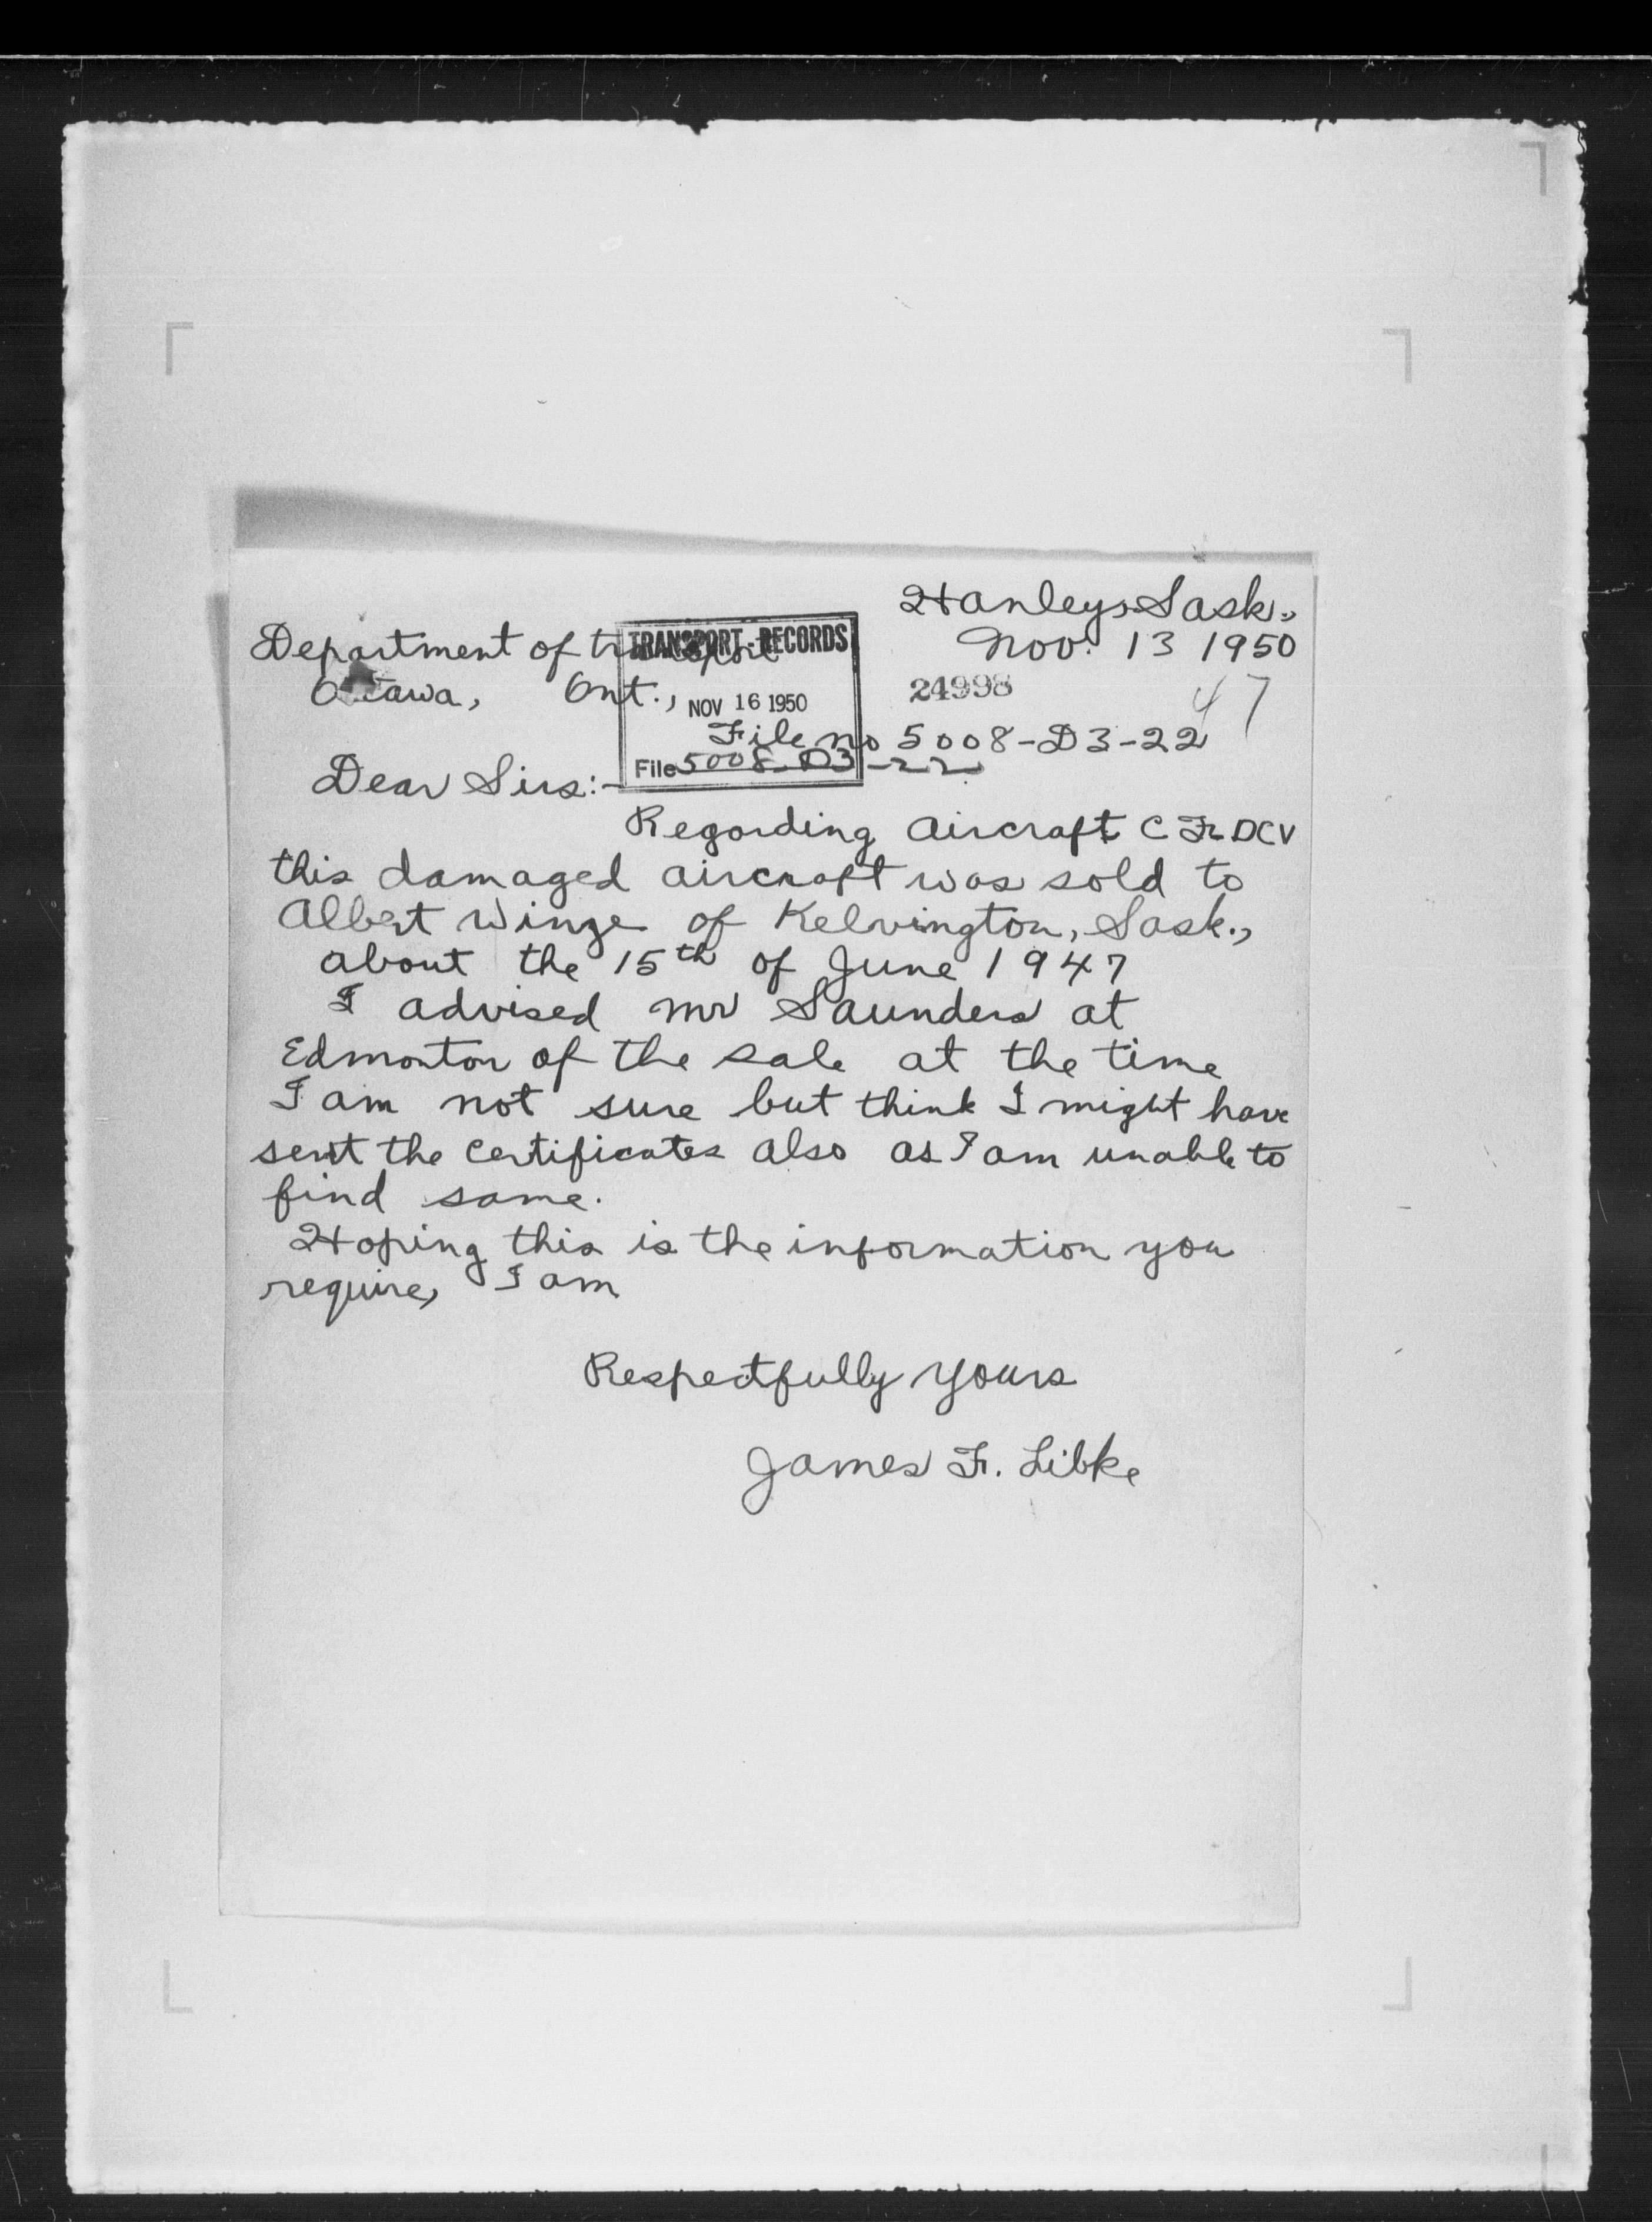 Hanley, Sask.,
Nov. 13 1950
Department of transport
Ottawa, Ont.,
TRANSPORT - RECORDS
NOV 16 1950
File 5008-D3-22
24998
47
File no 5008-D3-22
Dear Sirs:-
Regarding aircraft CF DCV
this damaged aircraft was sold to
Albert Winge of Kelvington, Sask.,
about the 15th of June 1947
I advised Mr Saunders at
Edmonton of the sale at the time
I am not sure but think I might have
sent the certificates also as I am unable to
find same.
Hoping this is the information you
require, I am
Respectfully yours
James F. Libke